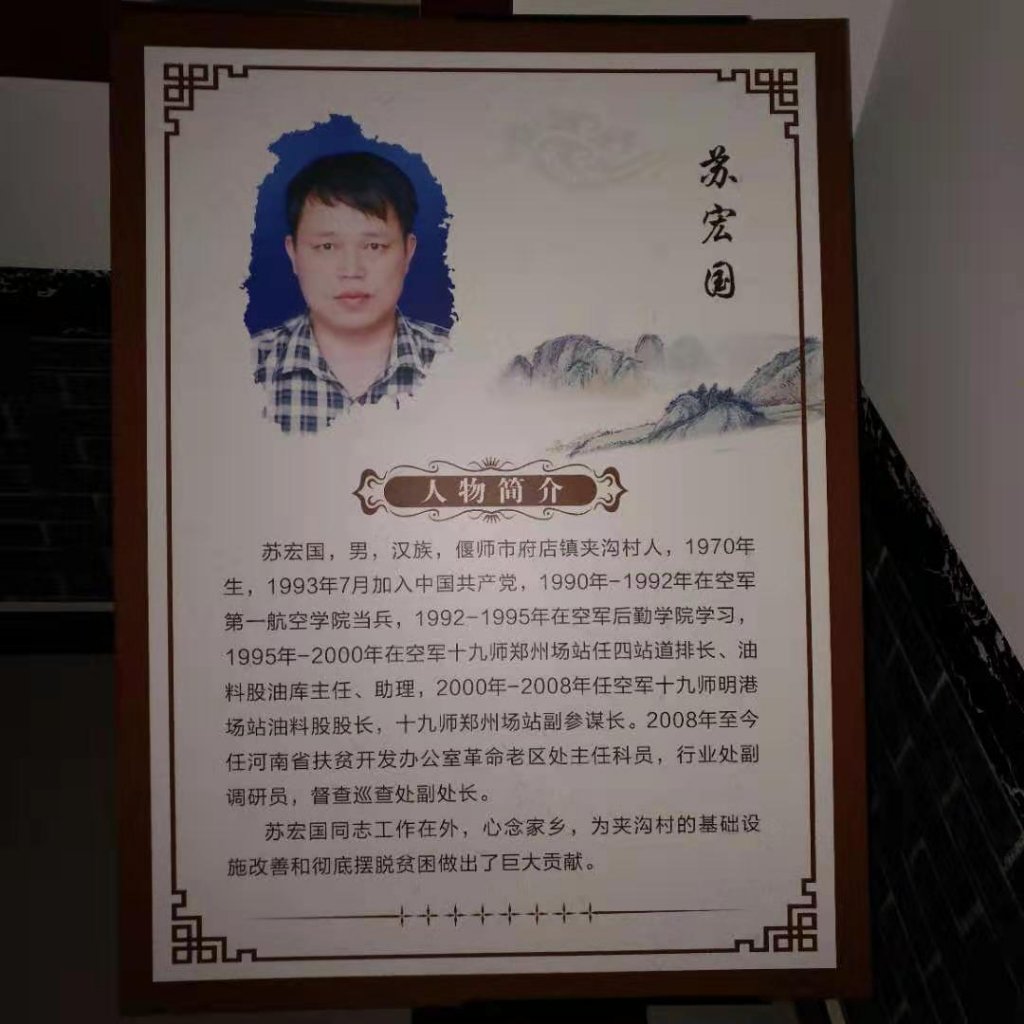 苏宏国
人物简介
苏宏国，男，汉族，偃师市府店镇夹沟村人，1970年
生，1993年7月加入中国共产党，1990年-1992年在空军
第一航空学院当兵，1992-1995年在空军后勤学院学习，
1995年-2000年在空军十九师郑州场站任四站道排长、油
料股油库主任、助理，2000年-2008年任空军十九师明港
场站油料股股长，十九师郑州场站副参谋长。2008年至今
任河南省扶贫开发办公室革命老区处主任科员，行业处副
调研员，督查巡查处副处长。
苏宏国同志工作在外，心念家乡，为夹沟村的基础设
施改善和彻底摆脱贫困做出了巨大贡献。